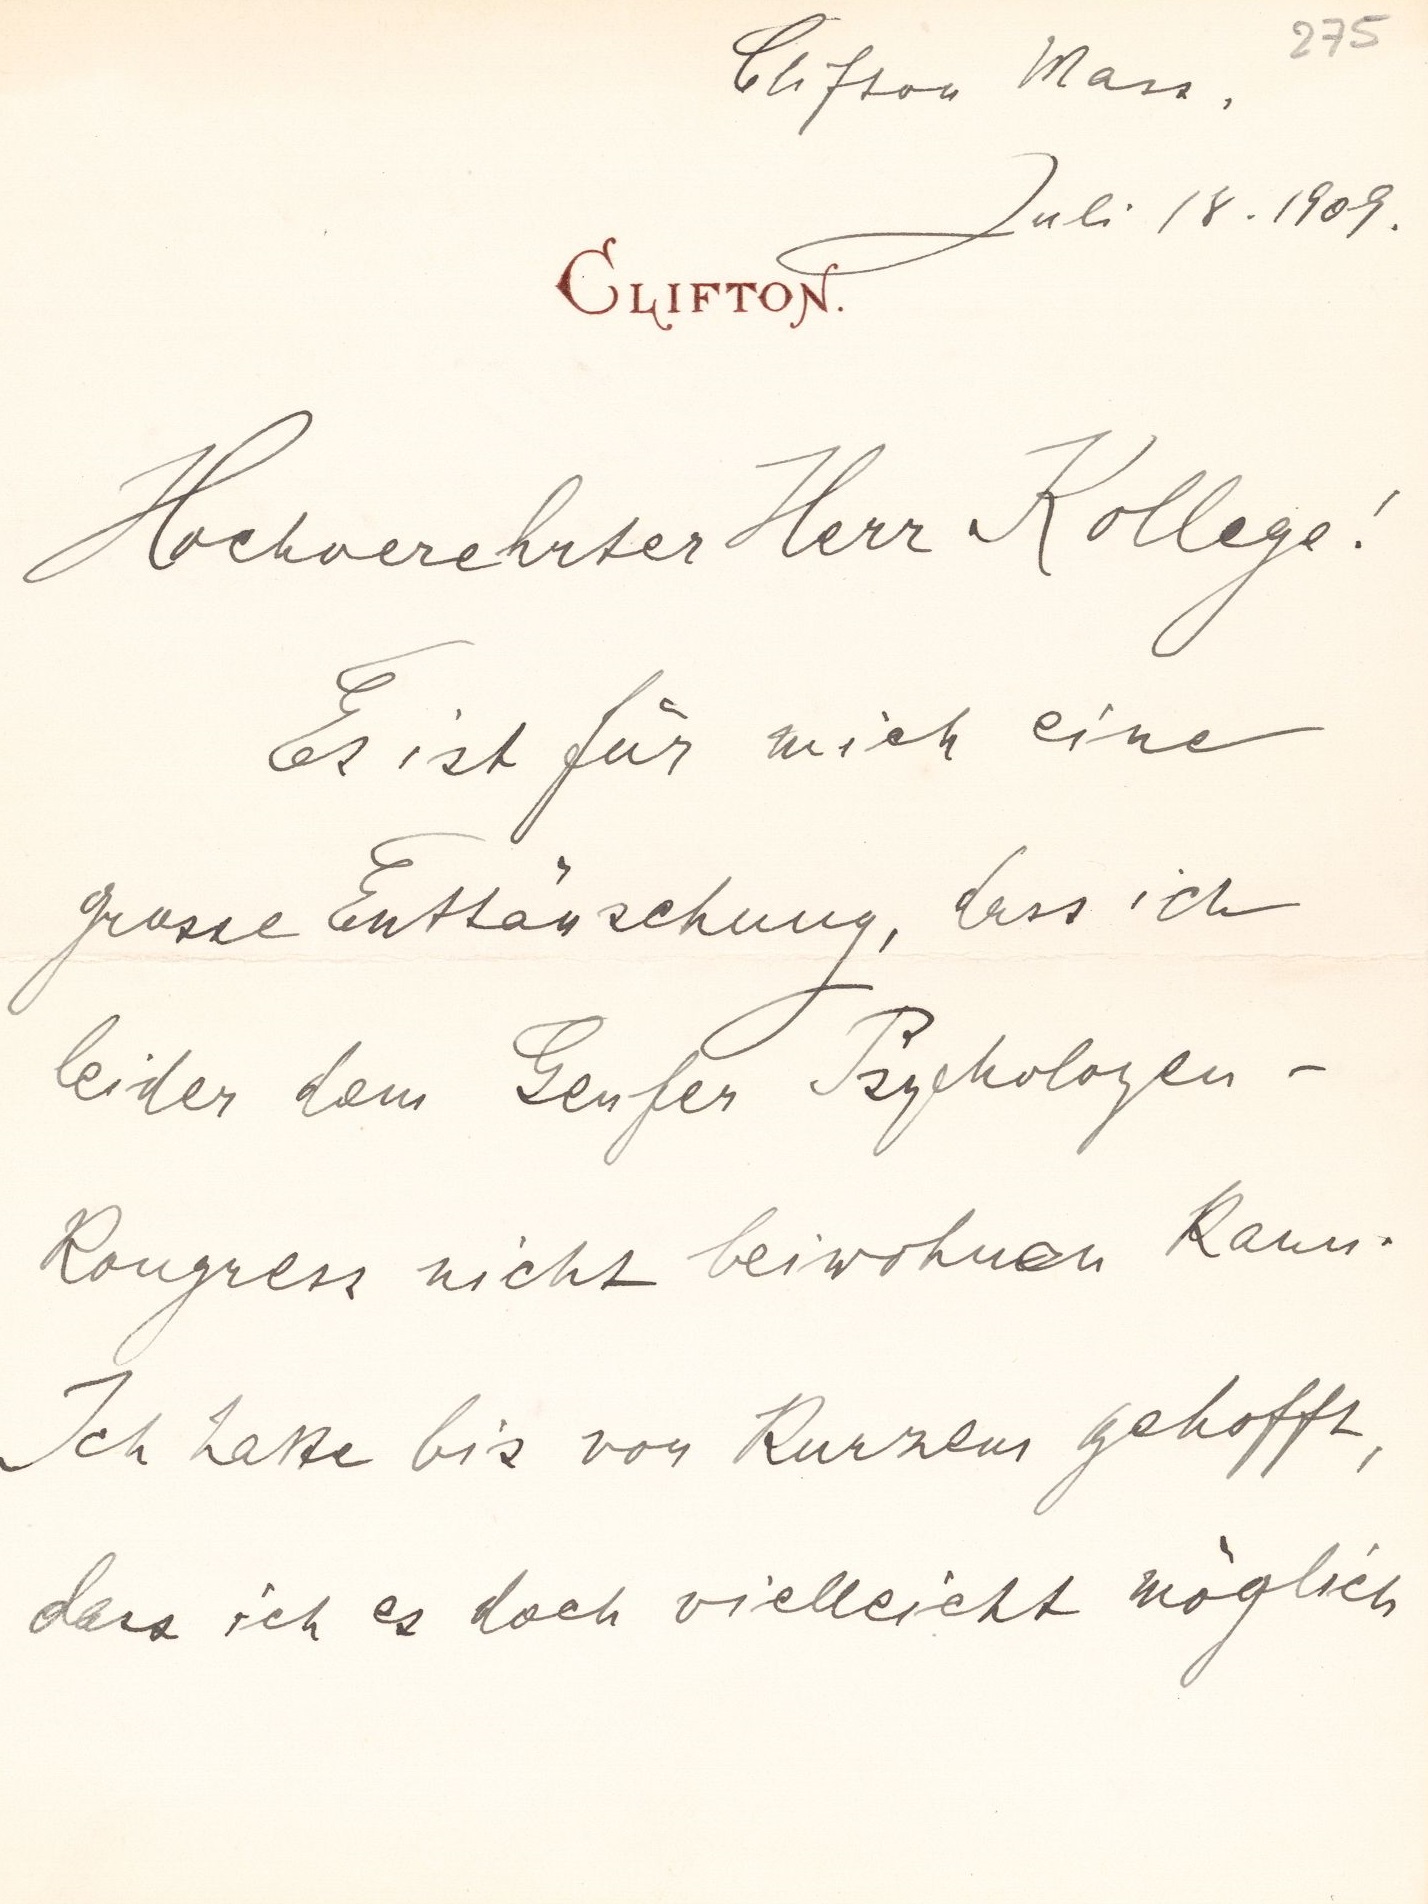 275
Clifton Mass.
Juli 18. 1909.
CLIFTON.
Hochverehrter Herr Kollege!
Es ist für mich eine
grosse Enttäuschung, dass ich
leider dem Genfer Psychologen-
Kongress nicht beiwohnen kann.
Ich hatte bis vor Kurzem gehofft,
dass ich es doch vielleicht möglich